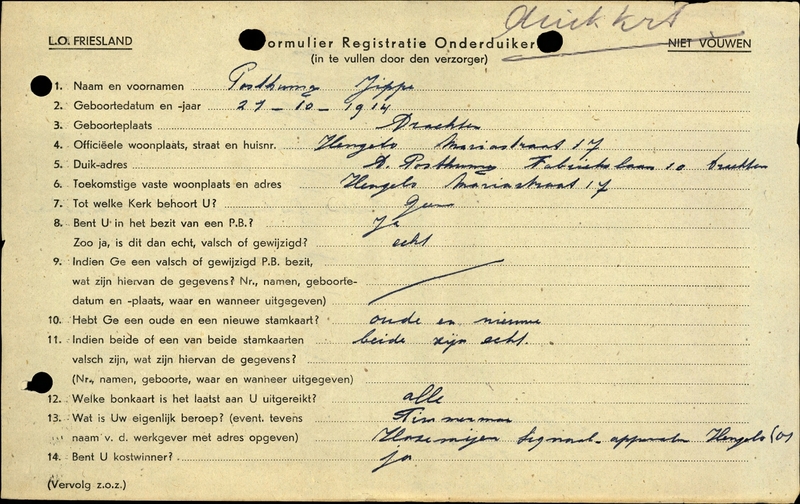 L.O. FRIESLAND
Formulier Registratie Onderduiker
NIET VOUWEN
(in te vullen door den verzorger)
1. Naam en voornamen Posthuma Jippe
2. Geboortedatum en -jaar 27-10-1914
3. Geboorteplaats Drachten
4. Officiëele woonplaats, straat en huisnr. Hengelo Mariastraat 17
5. Duik-adres D. Posthuma Fabriekslaan 10 Drachten
6. Toekomstige vaste woonplaats en adres Hengelo Mariastraat 17
7. Tot welke Kerk behoort U? Geen
8. Bent U in het bezit van een P.B.? Ja
Zoo ja, is dit dan echt, valsch of gewijzigd? echt
9. Indien Ge een valsch of gewijzigd P.B. bezit,
wat zijn hiervan de gegevens? Nr., namen, geboorte-
datum en -plaats, waar en wanneer uitgegeven)
10. Hebt Ge een oude en een nieuwe stamkaart? oude en nieuwe
11. Indien beide of een van beide stamkaarten beide zijn echt.
valsch zijn, wat zijn hiervan de gegevens?
(Nr., namen, geboorte, waar en wanneer uitgegeven)
12. Welke bonkaart is het laatst aan U uitgereikt? alle
13. Wat is Uw eigenlijk beroep? (event. tevens Timmerman
naam v. d. werkgever met adres opgeven) Hazemijer Signaal-apparaten Hengelo (o)
14. Bent U kostwinner? ja
(Vervolg z.o.z.)